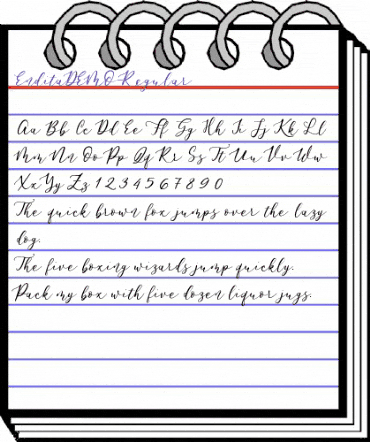 ErditaDEMO-Regular
Aa Bb Cc Dd Ee Ff Gg Hh Ii Jj Kk Ll
Mm Nn Oo Pp Qq Rr Ss Tt Uu Vv Ww
Xx Yy Zz 1 2 3 4 5 6 7 8 9 0
The quick brown fox jumps over the lazy
dog.
The five boxing wizards jump quickly.
Pack my box with five dozen liquor jugs.